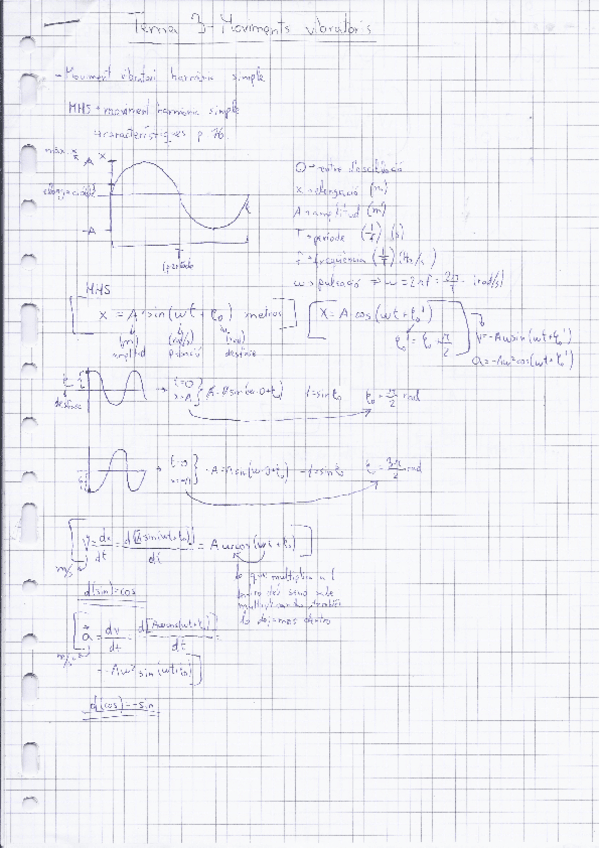 Tema 3 - Moviments vibratoris
- Moviment vibratori harmònic simple
MHS → moviment harmònic simple
característiques p 76
màx. x A x
-A
T
(període)
O → centre d'oscil·lació
x → elongació (m)
A → amplitud (m)
T → període (1/f) (s)
f → freqüència (1/T) (Hz/s)
ω → pulsació ⇒ ω = 2πf = 2π/T (rad/s)
MHS
x = A · sin(ωt + φ₀) metros
(m) (rad/s) (rad)
amplitud pulsació desfase
x = A cos(ωt + φ₀')
φ₀' = φ₀ - π/2
v = -Aω sin(ωt + φ₀')
a = -Aω² cos(ωt + φ₀')
desfase
t=0
x=A
A = A sin(ω·0 + φ₀) 1 = sin φ₀ φ₀ = π/2 rad
t=0
x=-A
-A = A sin(ω·0 + φ₀) -1 = sin φ₀ φ₀ = 3π/2 rad
v = dx/dt = d[A sin(ωt + φ₀)]/dt = Aω cos(ωt + φ₀)
m/s
lo que multiplica a t
dentro del seno sale
multiplicando
lo dejamos dentro
d(sin) = cos
a = dv/dt = d[Aω cos(ωt + φ₀)]/dt =
m/s²
= -Aω² sin(ωt + φ₀)
d(cos) = -sin